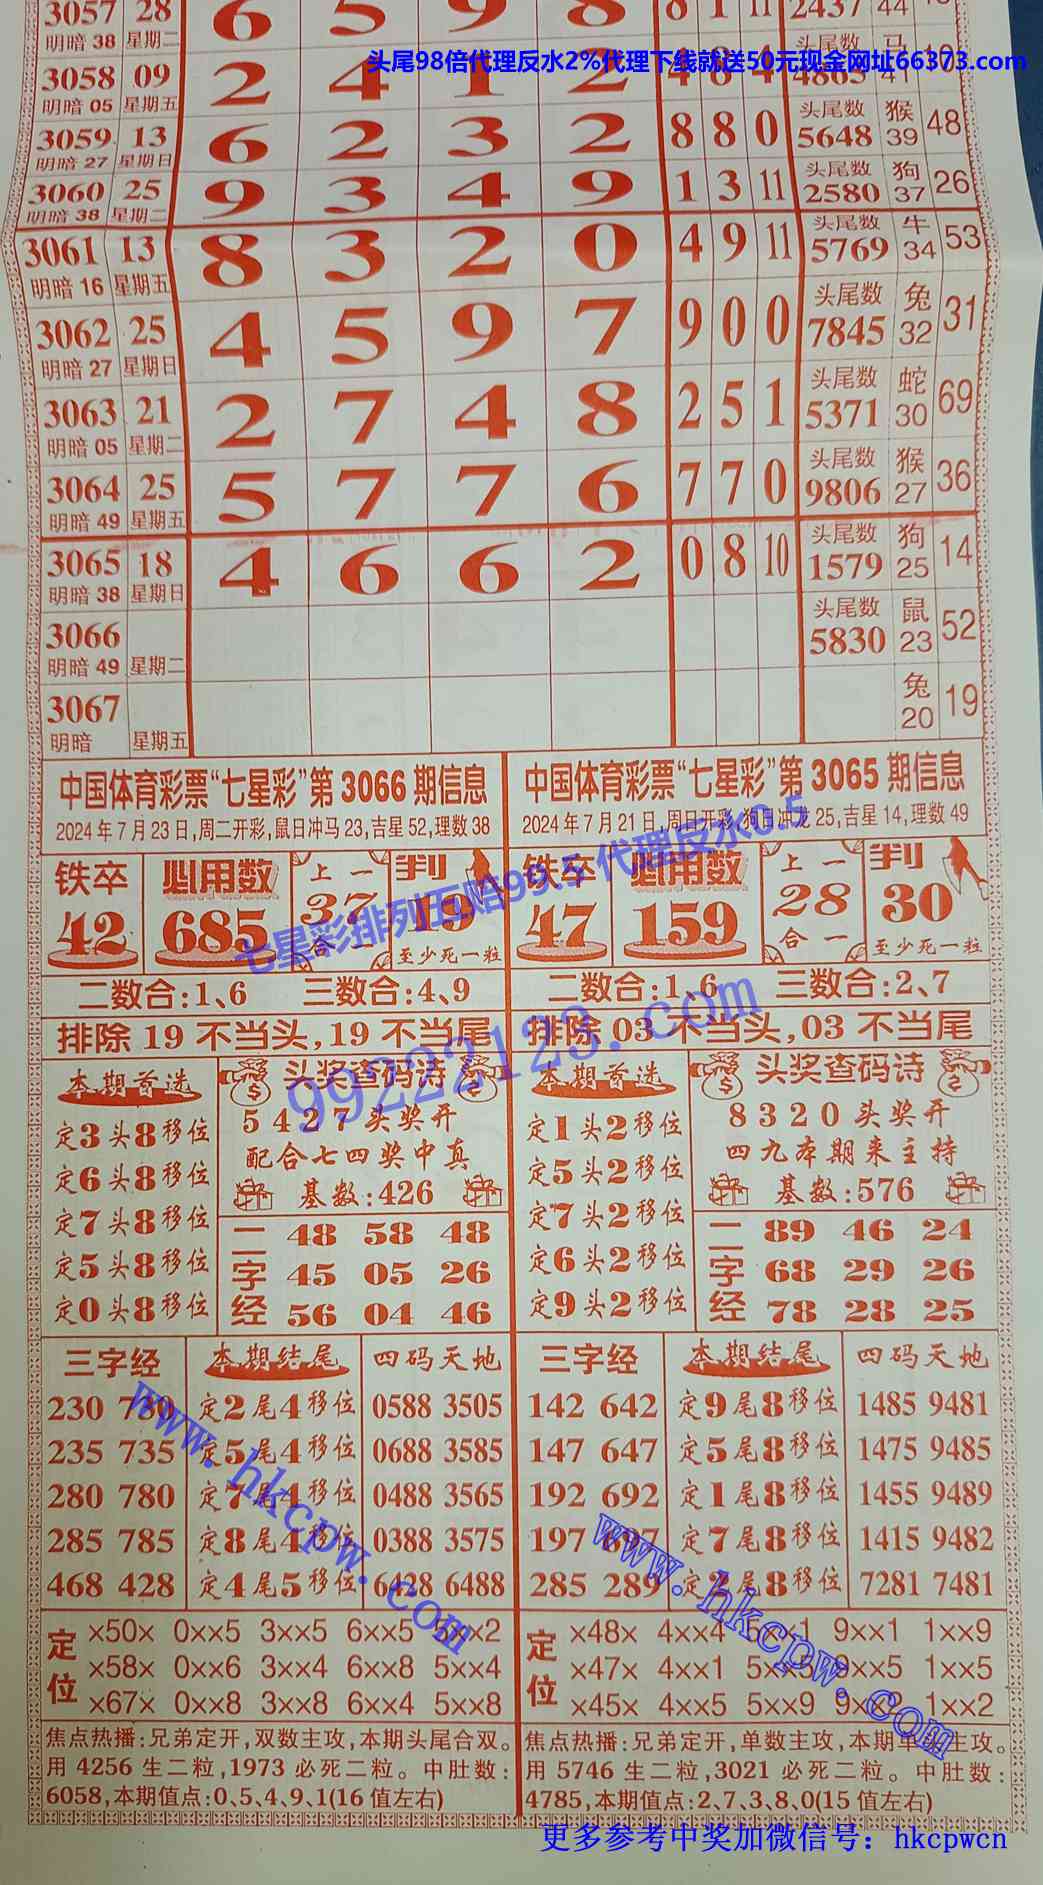 3057 28 6 5 9 8 8 1 11 2437 44
明暗 38 星期二
头尾98倍代理反水2%代理下线就送50元现金网址66373.com
3058 09 2 4 1 2 4865 41
明暗 05 星期五
3059 13 6 2 3 2 8 8 0 头尾数 5648 猴 39 48
明暗 27 星期日
3060 25 9 3 4 9 1 3 11 头尾数 2580 狗 37 26
明暗 38 星期二
3061 13 8 3 2 0 4 9 11 头尾数 5769 牛 34 53
明暗 16 星期五
3062 25 4 5 9 7 9 0 0 头尾数 7845 兔 32 31
明暗 27 星期日
3063 21 2 7 4 8 2 5 1 头尾数 5371 蛇 30 69
明暗 05 星期二
3064 25 5 7 7 6 7 7 0 头尾数 9806 猴 27 36
明暗 49 星期五
3065 18 4 6 6 2 0 8 10 头尾数 1579 狗 25 14
明暗 38 星期日
3066 头尾数 5830 鼠 23 52
明暗 49 星期二
3067 兔 20 19
明暗 星期五
中国体育彩票“七星彩”第 3066 期信息
2024年7月23日,周二开彩,鼠日冲马23,吉星52,理数38
铁卒 42
必用数 685
上一 37 合一
判 19 至少死一粒
二数合:1、6 三数合:4、9
排除 19 不当头,19 不当尾
本期首选
定3头8移位
定6头8移位
定7头8移位
定5头8移位
定0头8移位
头奖查码诗
5427头奖开
配合七四奖中真
基数:426
二字经
48 58 48
45 05 26
56 04 46
三字经
230 780
235 735
280 780
285 785
468 428
本期结尾
定2尾4移位
定5尾4移位
定7尾4移位
定8尾4移位
定4尾5移位
四码天地
0588 3505
0688 3585
0488 3565
0388 3575
6428 6488
定位
×50× 0××5 3××5 6××5 5××2
×58× 0××6 3××4 6××8 5××4
×67× 0××8 3××8 6××4 5××8
焦点热播:兄弟定开,双数主攻,本期头尾合双。
用 4256 生二粒,1973 必死二粒。中肚数:
6058,本期值点:0、5、4、9、1(16 值左右)
中国体育彩票“七星彩”第 3065 期信息
2024年7月21日,周日开彩,狗日冲龙25,吉星14,理数49
铁卒 47
必用数 159
上一 28 合一
判 30 至少死一粒
二数合:1、6 三数合:2、7
排除 03 不当头,03 不当尾
本期首选
定1头2移位
定5头2移位
定7头2移位
定6头2移位
定9头2移位
头奖查码诗
8320头奖开
四九本期来主持
基数:576
二字经
89 46 24
68 29 26
78 28 25
三字经
142 642
147 647
192 692
197 697
285 289
本期结尾
定9尾8移位
定5尾8移位
定1尾8移位
定7尾8移位
定2尾8移位
四码天地
1485 9481
1475 9485
1455 9489
1415 9482
7281 7481
定位
×48× 4××4 ××1 9××1 1××9
×47× 4××1 5×× 9××5 1××5
×45× 4××5 5××9 9×× 1××2
焦点热播:兄弟定开,单数主攻,本期单 主攻。
用 5746 生二粒,3021 必死二粒。中肚数:
4785,本期值点:2、7、3、8、0(15 值左右)
七星彩排列五赔99.5 代理反水0.5
99222123.com
www.hkcpw.com
www.hkcpw.com
更多参考中奖加微信号：hkcpwcn